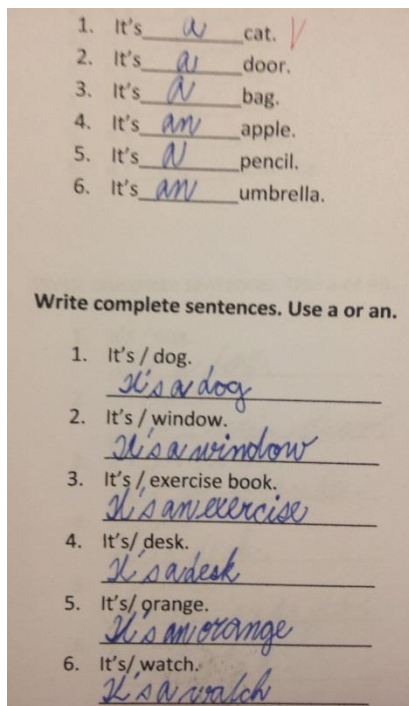 1. It's a cat. V
2. It's a door.
3. It's a bag.
4. It's an apple.
5. It's a pencil.
6. It's an umbrella.
Write complete sentences. Use a or an.
1. It's / dog.
It's a dog
2. It's / window.
It's a window
3. It's / exercise book.
It's an exercise
4. It's/ desk.
It's a desk
5. It's/ orange.
It's an orange
6. It's/ watch.
It's a watch